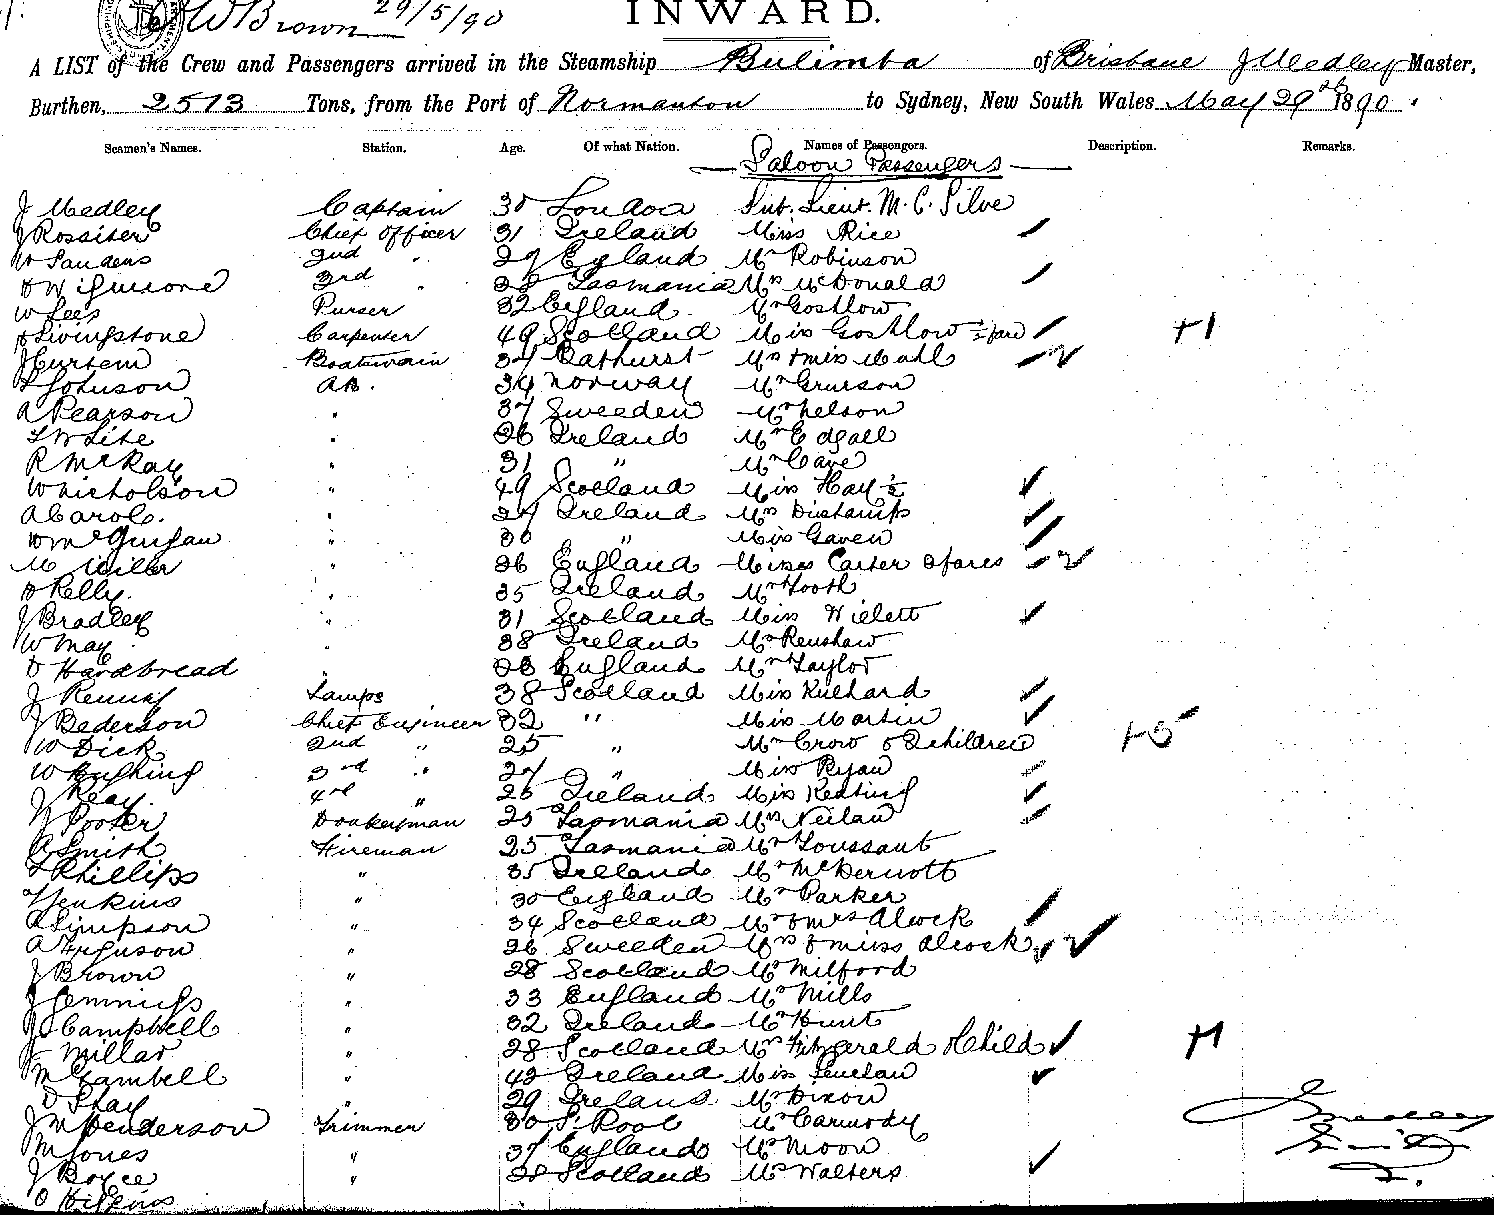 W Brown 29/5/90
INWARD.
A LIST of the Crew and Passengers arrived in the Steamship Bulimba of Brisbane J Medley Master,
Burthen, 2513 Tons, from the Port of Normanton to Sydney, New South Wales May 29th 1890.
Seamen's Names. Station. Age. Of what Nation. Names of Passengers. Description. Remarks.
Saloon Passengers
J Medley Captain 30 London Sub. Lieut. M. C. Silve
J Rossiter Chief Officer 31 Ireland Miss Rice
W Sanders 2nd " 29 England Mr Robinson
3rd " Tasmania Mrs McDonald
W Lees Purser 32 England Mr Gostlow
Livingstone Carpenter 49 Scotland Miss Gostlow +1
J Curtem Boatswain 34 Bathurst Mrs & Miss
Johnson AB. 34 Norway Mr
A Pearson " 37 Sweeden Mr Nelson
" 26 Ireland Mr Edgall
R McKay " 31 " Mr Cave
W Nicholson " 49 Scotland Miss Hay ½
A Carol. " Ireland Mrs
McGuigan " 30 " Miss Gaven
M Miller " 26 England Misses Carter 2 fares 2
Kelly. " 35 Ireland Mr Tooth
J Bradley " 31 Scotland Miss
W May " 38 Ireland Mr Renshaw
D Hardbread " England Mr Taylor
J Lamps 38 Scotland Miss
J Pederson Chief Engineer 32 " Miss Martin
W Dick 2nd " 25 " Mr Crow 5 children +5
W 3rd " 27 " Miss Ryan
J Reay. 4rd " 26 Ireland Miss Keating
J Donkeyman 25 Tasmania Mrs Neilan
A Smith Fireman 25 Tasmania Mr Toussaut
Phillips " 35 Ireland Mr McDermott
Jenkins " 30 England Mr Parker
A Simpson " 34 Scotland Mr & Mrs Alcock
A Ferguson " 26 Sweeden Mrs & Miss Alcock 2
J Brown " 28 Scotland Mr Milford
J Jennings " 33 England Mr Mills
Campbell " 32 Ireland Mr Hunt
J Millar " 28 Scotland Mrs Fitzgerald & Child +1
M " 42 Ireland Miss
D " 29 Ireland Mr Dixon
J Henderson Trimmer 30 Mr Carmody
M Jones " 37 England Mr Moon
J Boyce " Scotland Mrs Walters
O Higgins